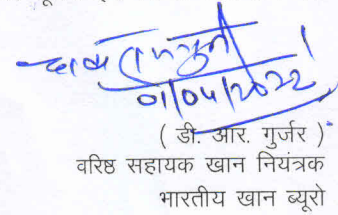 01/04/2022
( डी. आर. गुर्जर )
वरिष्ठ सहायक खान नियंत्रक
भारतीय खान ब्यूरो